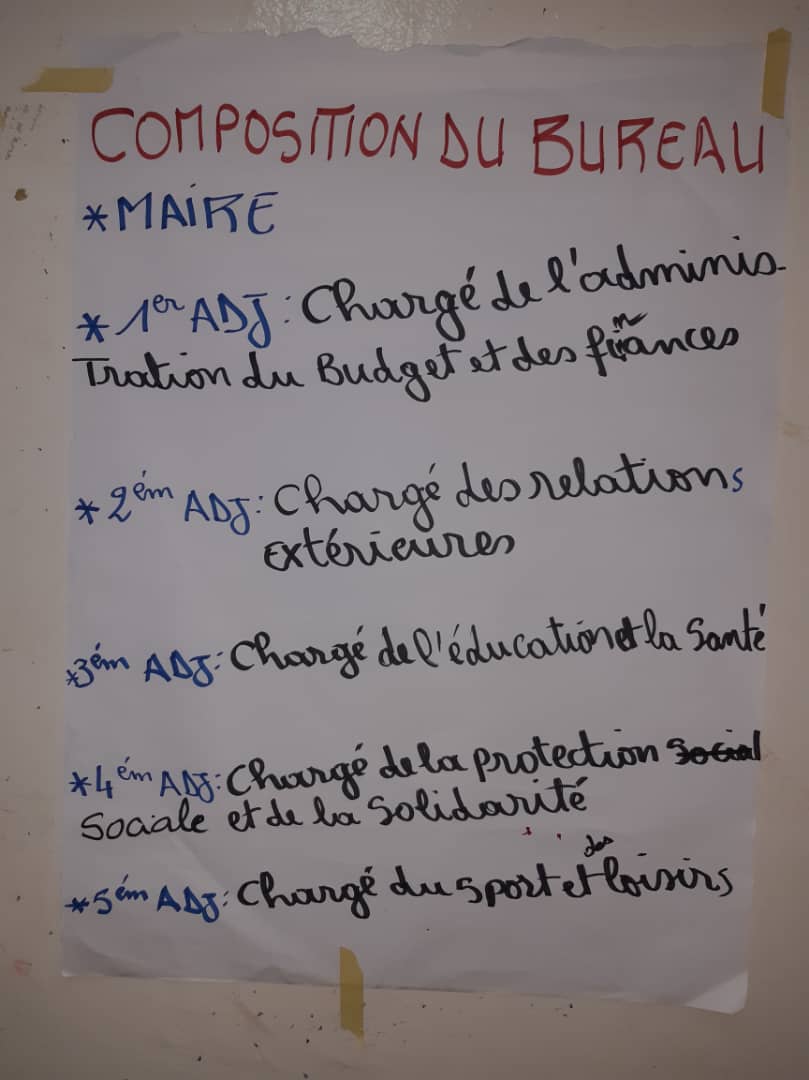 COMPOSITION DU BUREAU
*MAIRE
*1er ADJ: Chargé de l'adminis-
Tration du Budget et des finances
*2ém ADJ: Chargé des relations
Extérieures
*3ém ADJ: Chargé de l'éducation et la Santé
*4ém ADJ: Chargé de la protection Social
Sociale et de la Solidarité
*5ém ADJ: Chargé du sport et des loisirs